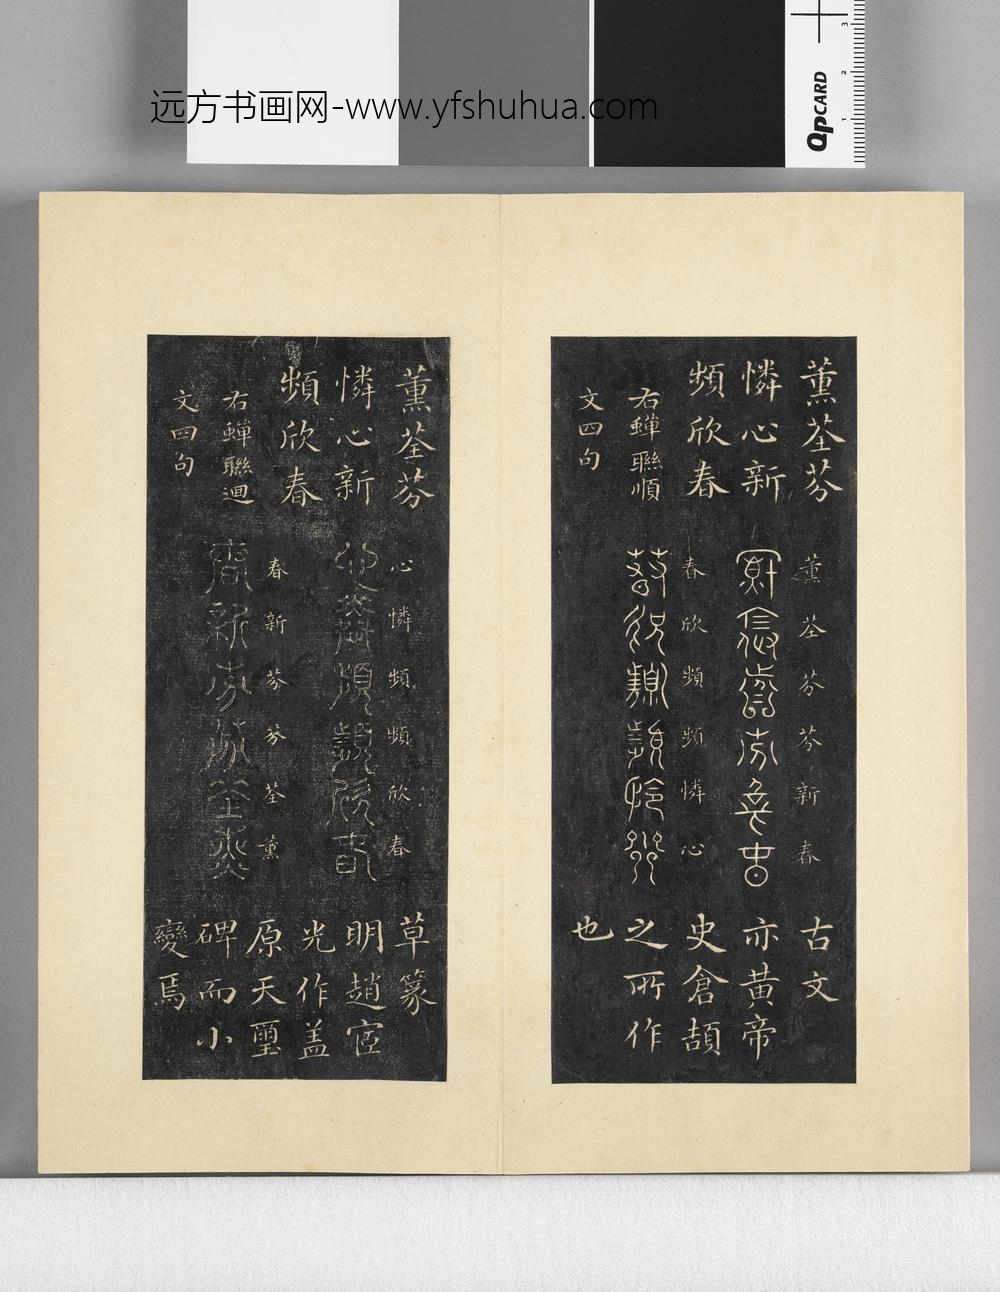 远方书画网-www.yfshuhua.com
QpCARD
1 2 3
薰荃芬
憐心新
頻欣春
右蟬聯順
文四句
薰荃芬芬新春
春欣頻頻憐心
古文
亦黃帝
史倉頡
之所作
也
薰荃芬
憐心新
頻欣春
右蟬聯迴
文四句
心憐頻頻欣春
春新芬芬荃薰
草篆
明趙宧
光作蓋
原天璽
碑而小
變焉